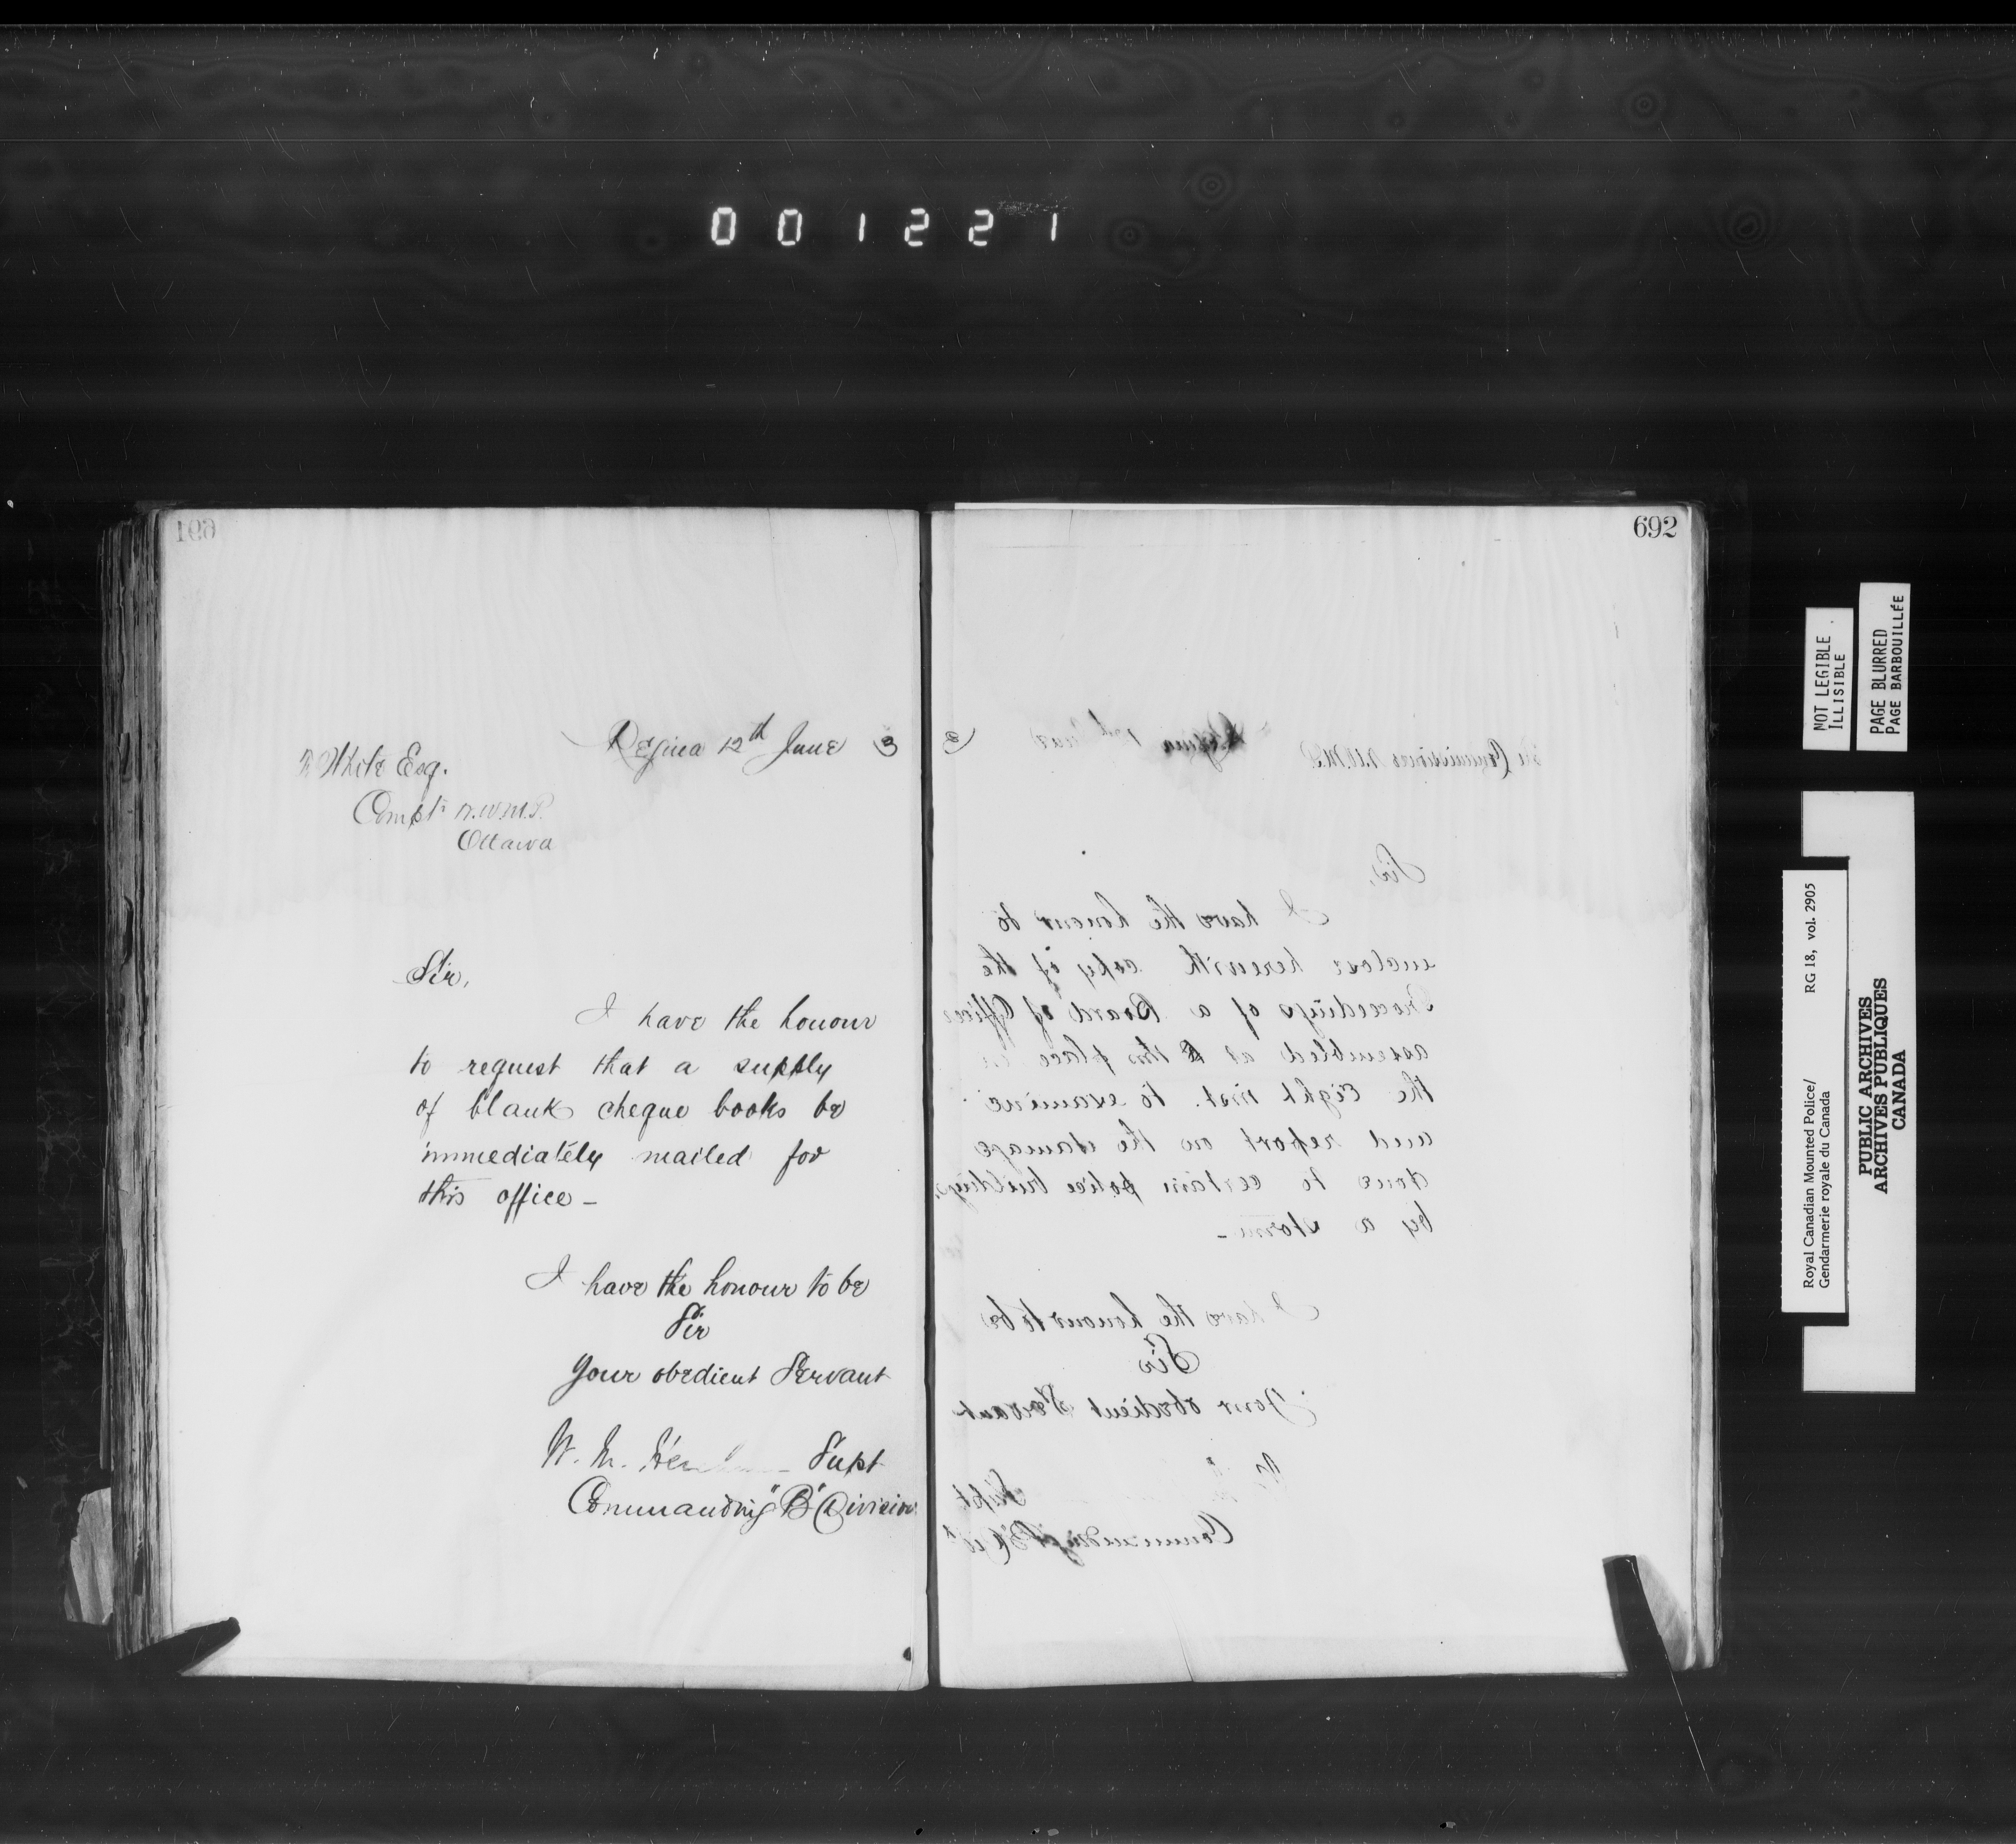 001221
691
Regina 12th June 3
F White Esq.
Compt N.W.M.P.
Ottawa
Sir,
I have the honour
to request that a supply
of blank cheque books be
immediately mailed for
this office -
I have the honour to be
Sir
Your obedient Servant
W. M. Supt
Commanding "B" Division
692
Regina 12th June 3
The Commissioner N.W.M.P.
Sir,
I have the honour to
enclose herewith copy of the
Proceedings of a Board of Officers
assembled at this place
the eight inst. to examine
and report on the damage
done to certain police buildings
by a storm -
I have the honour to be
Sir
Your obedient Servant
Supt
Commanding "B"
NOT LEGIBLE
ILLISIBLE
PAGE BLURRED
PAGE BARBOUILLÉE
Royal Canadian Mounted Police/ RG 18, vol. 2905
Gendarmerie royale du Canada
PUBLIC ARCHIVES
ARCHIVES PUBLIQUES
CANADA